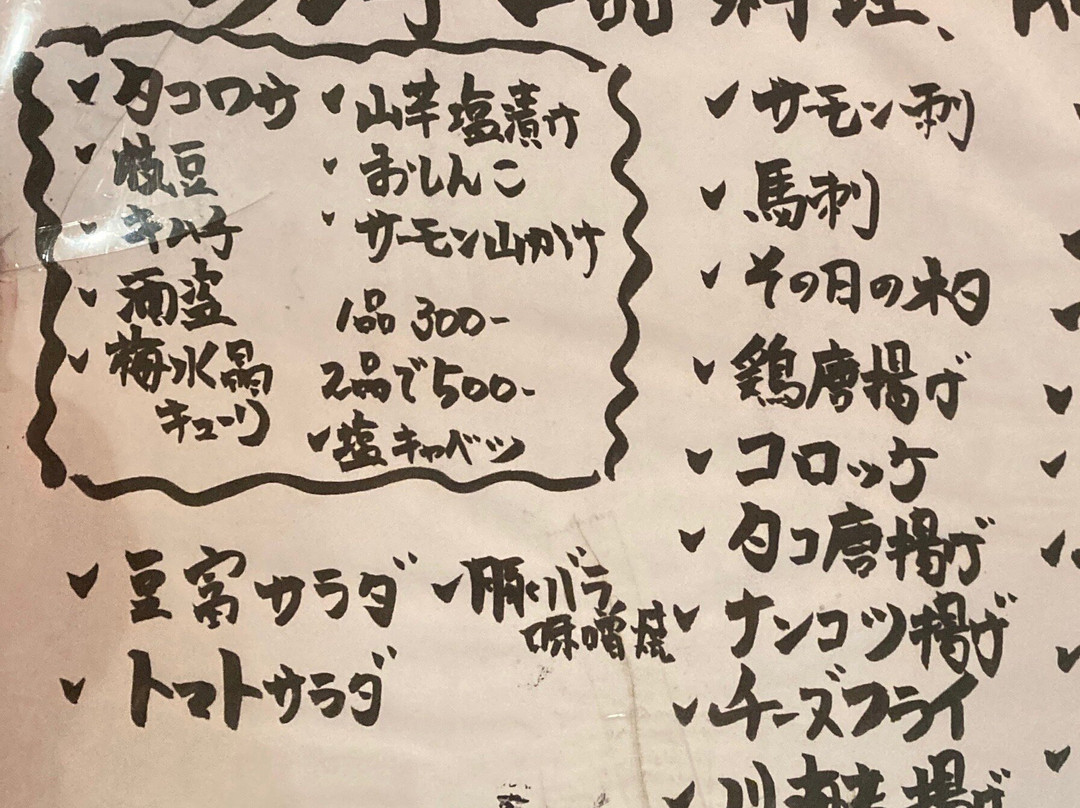 一品料理、
タコワサ
枝豆
キムチ
酒盗
梅水晶
キューリ
山芋塩漬け
おしんこ
サーモン山かけ
1品 300-
2品で500-
塩キャベツ
豆富サラダ
トマトサラダ
豚バラ
味噌焼
サーモン刺
馬刺
その日の
鶏唐揚げ
コロッケ
タコ唐揚げ
ナンコツ揚げ
チーズフライ
川海老揚げ